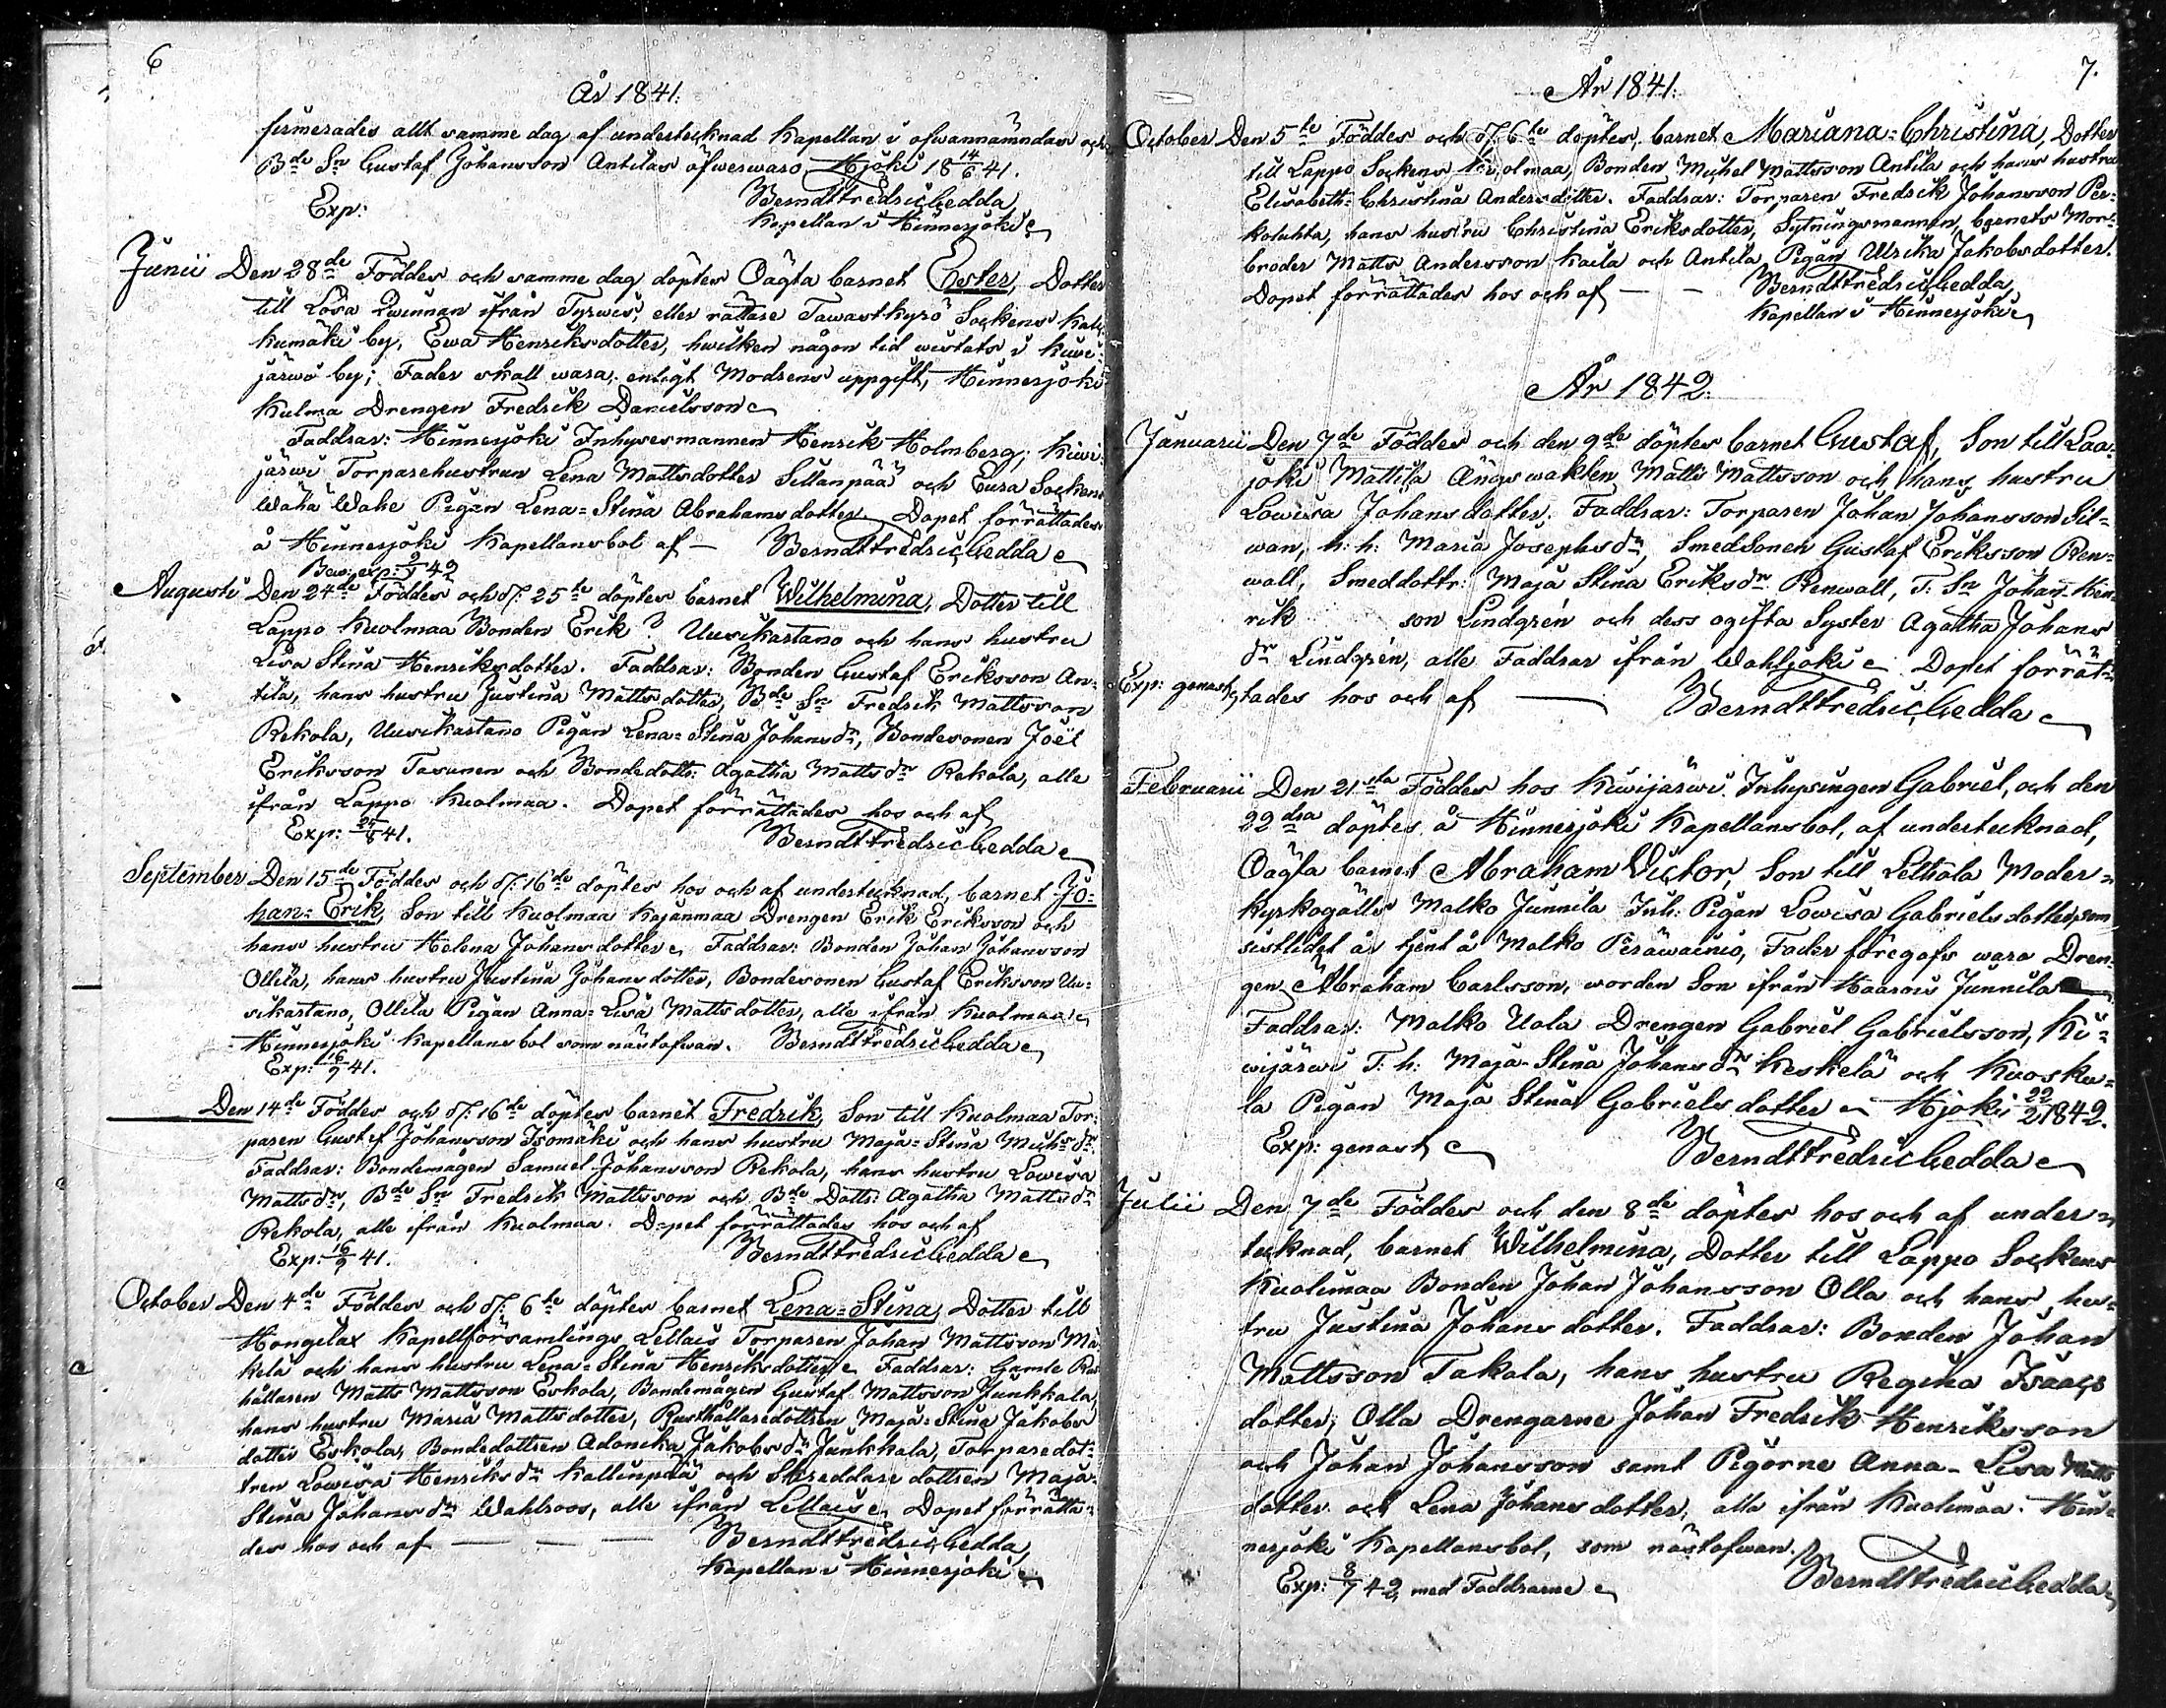 6
År 1841.
firmerades allt samme dag af undertecknad Kapellan i ofwannämndas och
Bde Sn Gustaf Johansson Antilas öfwerwaro. Hjoki 18 14/6 41.
Exp:
BerndtFredricGedda
Kapellan i Hinnerjoki
Junii Den 28de Föddes och samme dag döptes Oägta barnet Ester, Dotter
till Lösa Qwinnan ifrån Tyrwis, eller rättare Tawastkyrö Sockens
kumäki by, Ewa Henriksdotter, hwilken någon tid wistats i Kiwi-
järwi by; Fader skall wara, enligt Modrens uppgift, Hinnerjoki
Kulma Drengen Fredrik Danielsson
Faddrar: Hinnerjoki Inhysesmannen Henrik Holmberg; Kiwi-
järwi Torparehustrun Lena Mattsdotter Sillanpää och Eura Sockens
Waha Wahe Pigan Lena=Stina Abrahamsdotter. Dopet förrättades
å Hinnerjoki Kapellansbol af — BerndtFredricGedda
Bew: exp: 42
Augusti Den 24de Föddes och d: 25te döptes barnet Wilhelmina, Dotter till
Lappo Kuolmaa Bonden Erik ? Uusikartano och hans hustru
Lisa Stina Henriksdotter. Faddrar: Bonden Gustaf Eriksson An-
tila, hans hustru Justina Mattsdotter, Bde Sn Fredrik Mattsson
Rekola, Uusikartano Pigan Lena=Stina Johansdr, Bondesonen Joël
Eriksson Tasunen och Bondedottr: Agatha Mattsdr Rekola, alle
ifrån Lappo Kuolmaa. Dopet förrättades hos och af
Exp: 25/8 41.
BerndtFredricGedda
September Den 15de Föddes och d: 16de döptes hos och af undertecknad, barnet Jo-
han=Erik, Son till Kuolmaa Kajanmaa Drengen Erik Eriksson och
hans hustru Helena Johansdotter. Faddrar: Bonden Johan Johansson
Ollila, hans hustru Justina Johansdotter, Bondesonen Gustaf Eriksson Uu-
sikartano, Ollila Pigan Anna=Lisa Mattsdotter, alle ifrån Kuolmaa
Hinnerjoki Kapellansbol som nästofwan. BerndtFredricGedda
Exp: 16/9 41.
Den 14de Föddes och d: 16de döptes barnet Fredrik, Son till Kuolmaa Tor-
paren Gustaf Johansson Isomäki och hans hustru Maja=Stina Michsdr.
Faddrar: Bondemågen Samuel Johansson Rekola, hans hustru Lowisa
Mattsdr, Bde Sn Fredrik Mattsson och Bde Dottr: Agatha Mattsdr
Rekola, alle ifrån Kuolmaa. Dopet förrättades hos och af
Exp: 16/9 41.
BerndtFredricGedda
October Den 4de Föddes och d: 6te döptes barnet Lena=Stina, Dotter till
Hongilax Kapellförsamlings Lellais Torparen Johan Mattsson Mä-
kelä och hans hustru Lena=Stina Henriksdotter. Faddrar: Gamle Rus
hållaren Matts Mattsson Eskola, Bondemågen Gustaf Mattsson Junkkala,
hans hustru Maria Mattsdotter, Rusthållaredottren Maja=Stina Jakobs
dotter Eskola, Bondedottren Adonika Jakobsdr Junkkala, Torparedot-
tren Lowisa Henriksdr Kallinpää och Skreddare dottren Maja-
Stina Johansdr Wahlroos, alle ifrån Lellais. Dopet förrätta-
des hos och af — — — BerndtFredricGedda,
Kapellan i Hinnerjoki
7.
År 1841.
October Den 5te Föddes och d: 6te döptes, barnet Mariana=Christina, Dotter
till Lappo Sockens Kuolmaa, Bonden Michel Mattsson Antila och hans hustru
Elisabeth=Christina Andersdotter. Faddrar: Torparen Fredrik Johansson Per-
koluhta, hans hustru Christina Eriksdotter, Sytningsmannen, barnets Mor-
broder Matts Andersson Kaila och Antila Pigan Ulrika Jakobsdotter.
Dopet förrättades hos och af — — BerndtFredricGedda,
Kapellan i Hinnerjoki
År 1842.
Januarii Den 7de Föddes och den 9de döptes barnet Gustaf, Son till Laa-
joki Mattila Ängswakten Matts Mattsson och hans hustru
Lowisa Johansdotter. Faddrar: Torparen Johan Johansson Sil-
wan, h: h: Maria Josephsdr, Smedsonen Gustaf Eriksson Ren-
wall, Smeddottr: Maja Stina Eriksdr Renwall, T: Sn Johan Hen-
rik son Lindgrén och dess ogifta Syster Agatha Johans
dr Lindgrén, alle Faddrar ifrån Wahljoki. Dopet förrät-
Exp: genast tades hos och af — BerndtFredricGedda
Februarii Den 21sta Föddes hos Kiwijärwi Inhysingen Gabriel, och den
22dra döptes å Hinnerjoki Kapellansbol, af undertecknad,
Oägta barnet Abraham Victor, Son till Lethala Moder-
Kyrkogälls Malko Junnila Inh: Pigan Lowisa Gabrielsdotter, som
sistlidet år tjent å Malko Peräwainio, Fader föregafs wara Dren-
gen Abraham Carlsson, worden Son ifrån Haarois Junnila
Faddrar: Malko Uola Drengen Gabriel Gabrielsson, Ki-
wijärwi T: h: Maja-Stina Johansdr Keskelä och Kuosku-
la Pigan Maja Stina Gabriels dotter. Hjoki 22/2 1842.
Exp: genast
BerndtFredricGedda
Julii Den 7de Föddes och den 8de döptes hos och af under-
tecknad, barnet Wilhelmina, Dotter till Lappo Sockens
Kuolimaa Bonden Johan Johansson Olla och hans hus-
tru Justina Johans dotter. Faddrar: Bonden Johan
Mattsson Takala, hans hustru Regina Isaacs
dotter; Olla Drengarne Johan Fredrik Henriksson
och Johan Johansson samt Pigorne Anna-Lisa Matts
dotter och Lena Johans dotter, alla ifrån Kuolimaa. Hin-
nerjoki Kapellansbol, som nästofwan.
Exp: 8/7 42, med Faddrarne
BerndtFredricGedda